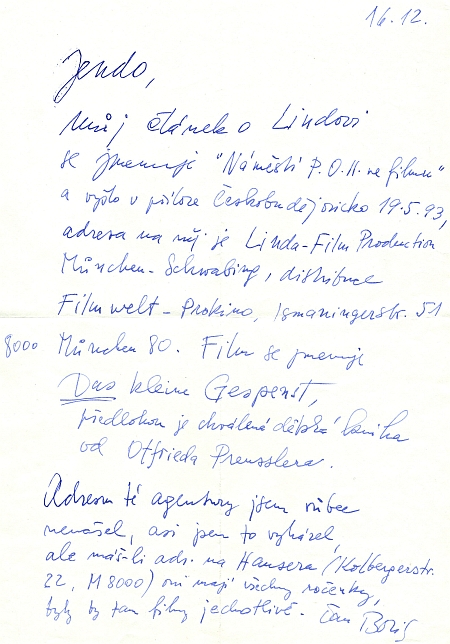 16.12.
Jendo,
můj článek o Lindovi
se jmenuje "Náměstí P.O.H. ve filmu"
a vyšlo v příloze Českobudějovicko 19.5.93,
adresa na něj je Linda-Film Production
München-Schwabing, distribuce
Filmwelt - Prokino, Ismaningerstr. 51
8000 München 80. Film se jmenuje
Das kleine Gespenst,
předlohou je chválená dětská kniha
od Otfrieda Preusslera.
Adresu té agentury jsem vůbec
nenašel, asi jsem to vyházel,
ale máš-li adr. na Hansera (Kolbergerstr.
22, M 8000) oni mají všechny ročenky,
byly by tam filmy jednotlivě. Čau Boris